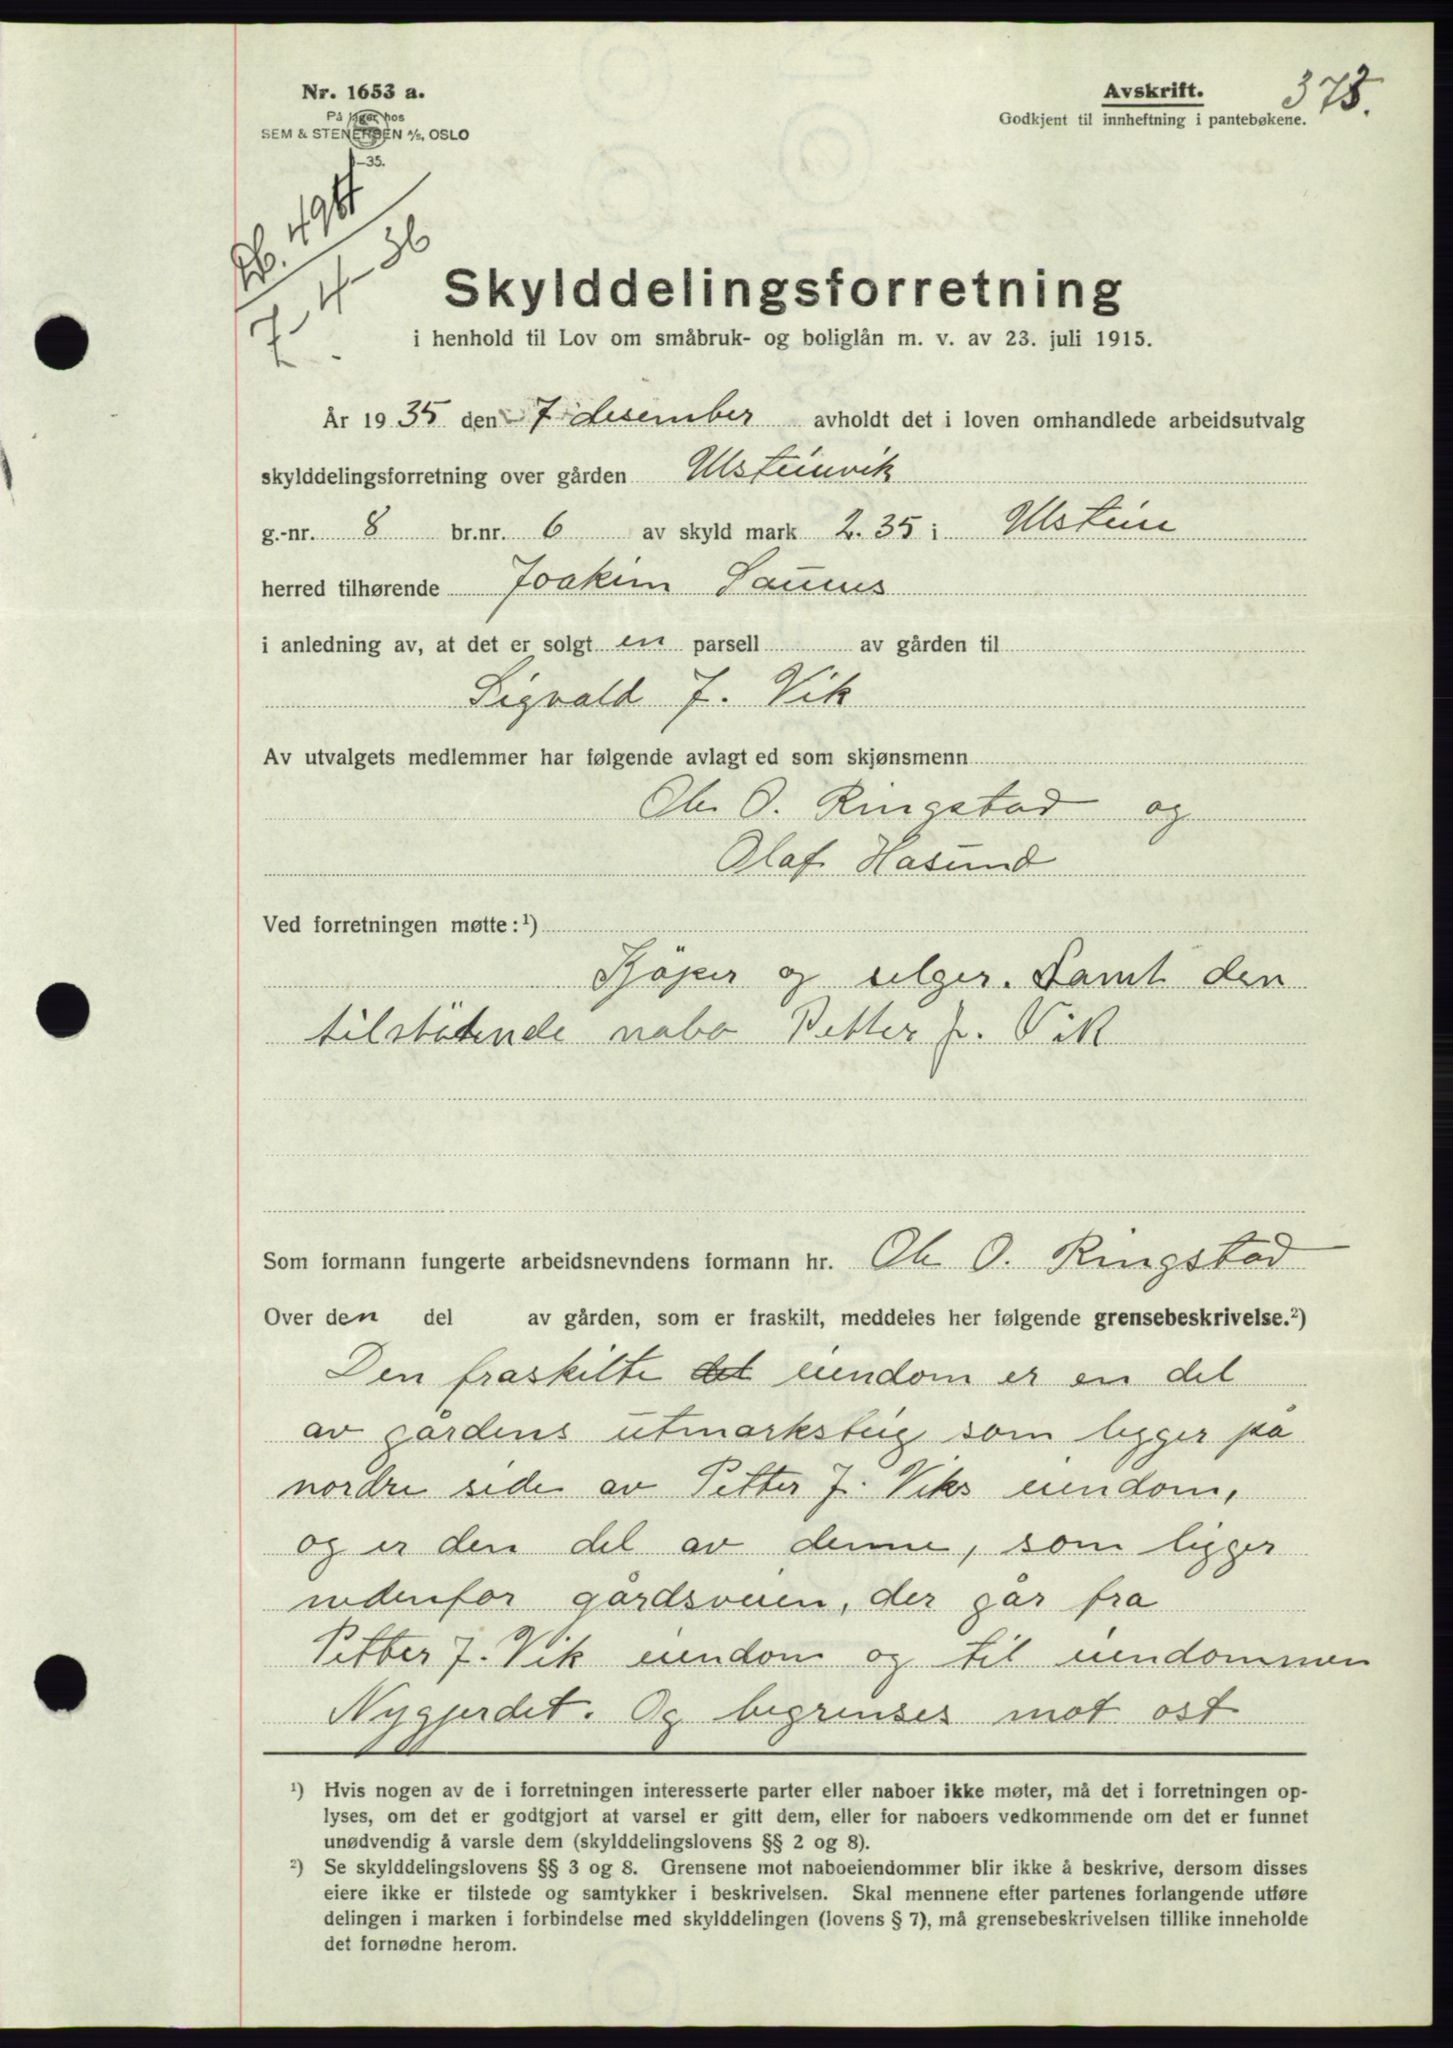 Nr. 1653 a.
På lager hos
SEM & STENERSEN A/S, OSLO
35.
Avskrift.
Godkjent til innheftning i pantebøkene.
378.
Db. 491
7-4-36
Skylddelingsforretning
i henhold til Lov om småbruk- og boliglån m. v. av 23. juli 1915.
År 1935 den 7 desember avholdt det i loven omhandlede arbeidsutvalg
skylddelingsforretning over gården Ulsteinvik
g.-nr. 8 br.nr. 6 av skyld mark 2.35 i Ulstein
herred tilhørende Joakim Saunes
i anledning av, at det er solgt en parsell av gården til
Sigvald J. Vik
Av utvalgets medlemmer har følgende avlagt ed som skjønsmenn
Ole O. Ringstad og
Olaf Hasund
Ved forretningen møtte:¹)
Kjöper og selger. Samt den
tilstötende nabo Petter J. Vik
Som formann fungerte arbeidsnevndens formann hr. Ole O. Ringstad
Over den del av gården, som er fraskilt, meddeles her følgende grensebeskrivelse.²)
Den fraskilte det eiendom er en del
av gårdens utmarksteig som ligger på
nordre side av Petter J. Viks eiendom,
og er den del av denne, som ligger
nedenfor gårdsveien, der går fra
Petter J. Vik eiendom og til eiendommen
Nygjerdet. Og begrenses mot ost
¹) Hvis nogen av de i forretningen interesserte parter eller naboer ikke møter, må det i forretningen op-
lyses, om det er godtgjort at varsel er gitt dem, eller for naboers vedkommende om det er funnet
unødvendig å varsle dem (skylddelingslovens §§ 2 og 8).
²) Se skylddelingslovens §§ 3 og 8. Grensene mot naboeiendommer blir ikke å beskrive, dersom disses
eiere ikke er tilstede og samtykker i beskrivelsen. Skal mennene efter partenes forlangende utføre
delingen i marken i forbindelse med skylddelingen (lovens § 7), må grensebeskrivelsen tillike inneholde
det fornødne herom.